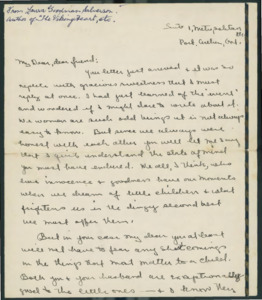 From Laura Goodman Salverson
Author of The Viking Heart, etc.
Suite 1, Metropolitan
My Dear, dear friend:
Your letter just arrived & it was so
replete with gracious sweetness that I must
reply at once. I had just learned of the "event"
and wondered if I might dare to write about it.
We women are such odd beings it is not always
easy to know. But since we always were
honest with each other you will let me say
that I quite understand the state of mind
you must have endured. We all, I think, who
love innocence & goodness have our moments
when we dream of little children & what
frightens us is the dingy second best
we must offer them.
But in your case my dear you at least
will not have to fear any short comings
in the things that most matter to a child.
Both you & your husband are exceptionally
good to the little ones — & I know they